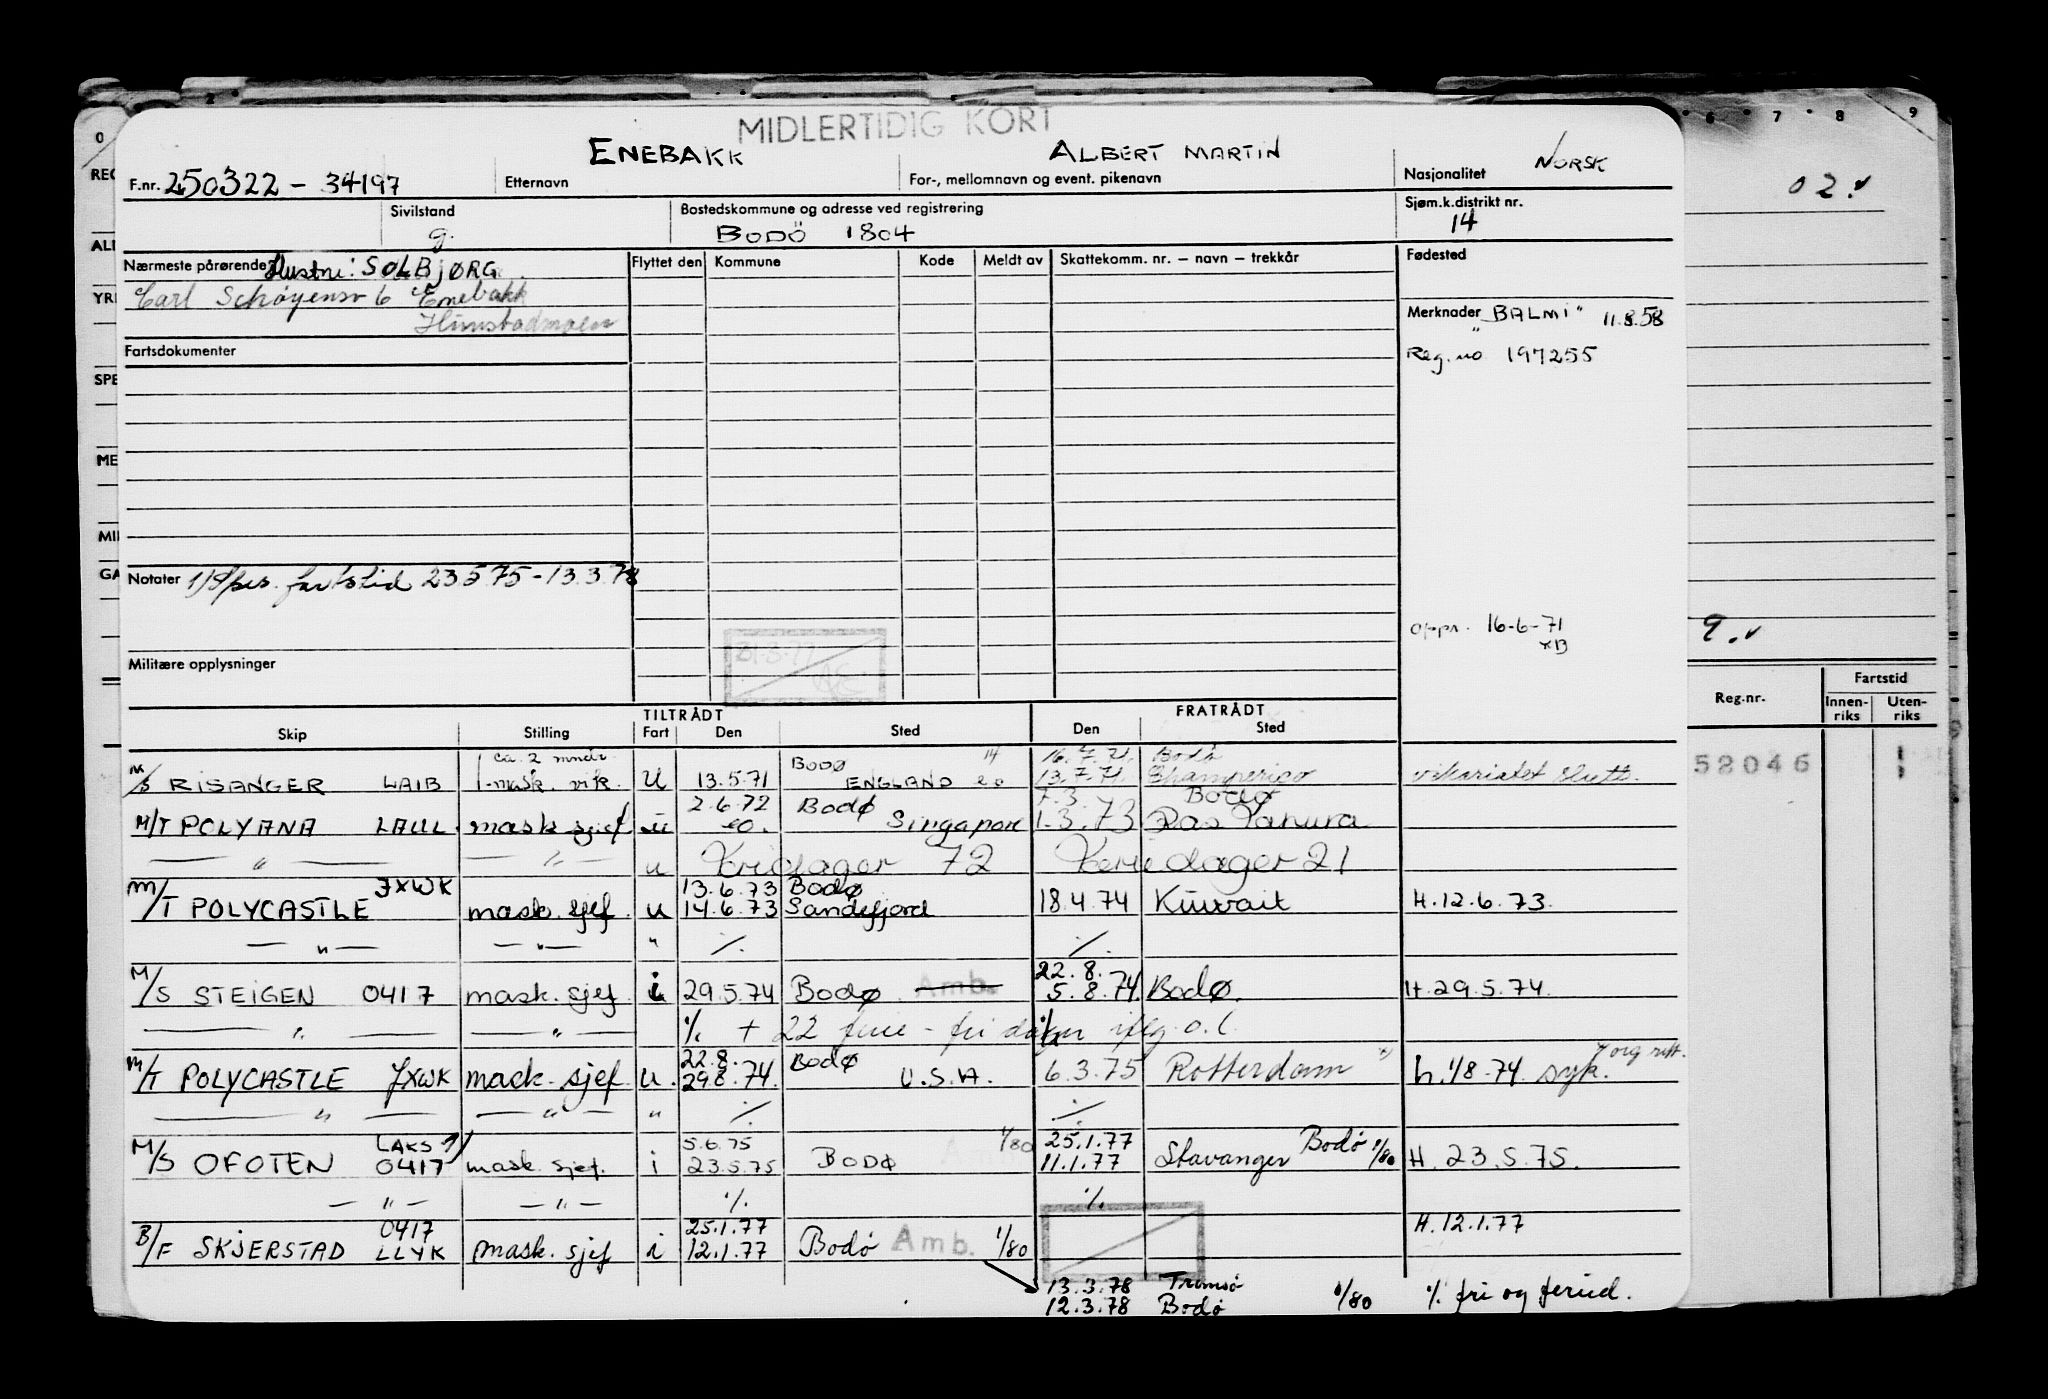 MIDLERTIDIG KORT
F.nr. 250322 - 34197 ENEBAKK Etternavn ALBERT MARTIN For-, mellomnavn og event. pikenavn Nasjonalitet NORSK
Sivilstand g. Bostedskommune og adresse ved registrering BODÖ 1804 Sjøm.k.distrikt nr. 14
Nærmeste pårørende Hustru: SOLBJØRG Flyttet den Kommune Kode Meldt av Skattekomm. nr. — navn — trekkår Fødested
Carl Schøyensv 6 Enebakk
Hunstadmoen
Merknader "BALMI" 11.8.58
Reg. no 197255
Fartsdokumenter
Notater fartstid 23.5.75 - 13.3.78
oppr. 16-6-71
Militære opplysninger
02.
9.
Reg.nr. Fartstid
Innen-riks Uten-riks
52046
TILTRÅDT FRATRÅDT
Skip Stilling Fart Den Sted Den Sted
ca. 2 mndr. BODØ 14 16.7.71. Bodø
M/S RISANGER LAIB 1-mask. vik. U 13.5.71 ENGLAND eo 13.7.71. Champerico vikariatet slutt.
2.6.72 Bodø 7.3. Bodø
M/T POLYANA LAUL. mask sjef u eo. Singapore 1.3.73 Ras Tanura
— " — — " — u Feriedager 72 Feriedager 21
JXWK 13.6.73 Bodø
M/T POLYCASTLE mask. sjef. u 14.6.73 Sandefjord 18.4.74 Kuwait H.12.6.73.
— " — — " — " %. %.
22.8.
M/S STEIGEN 0417 mask. sjef i 29.5.74 Bodø Amb. 5.8.74. Bodø. H.29.5.74.
— " — — " — %. + 22 ferie - fri dager iflg. o.l.
22.8. Bodø
M/T POLYCASTLE JXWK mask. sjef u. 29.8.74. U.S.A. 6.3.75 Rotterdam h.1/8-74 syk.
— " — — " — " %. %.
LAKS 5.6.75 1/80 25.1.77 Bodø 1/80
M/S OFOTEN 0417 mask. sjef. i 23.5.75 BODØ 11.1.77 Stavanger H. 23.5.75.
— " — — " — %. %.
0417 25.1.77 H.12.1.77
B/F SKJERSTAD LLYK mask. sjef i 12.1.77 Bodø Amb. 1/80
13.3.78 Tromsø
12.3.78 Bodø 1/80 %. fri og feried.